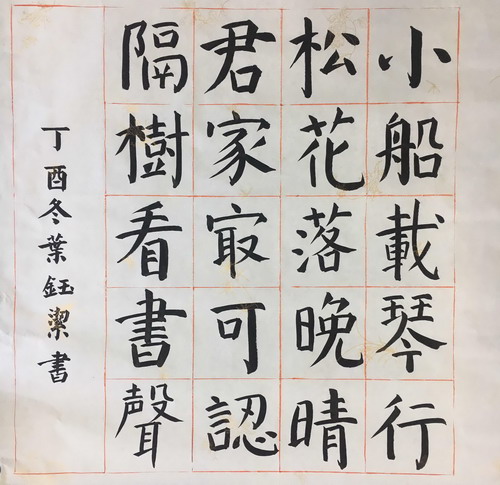 小船載琴行
松花落晚晴
君家㝡可認
隔樹看書聲
丁酉冬葉鈺潔書